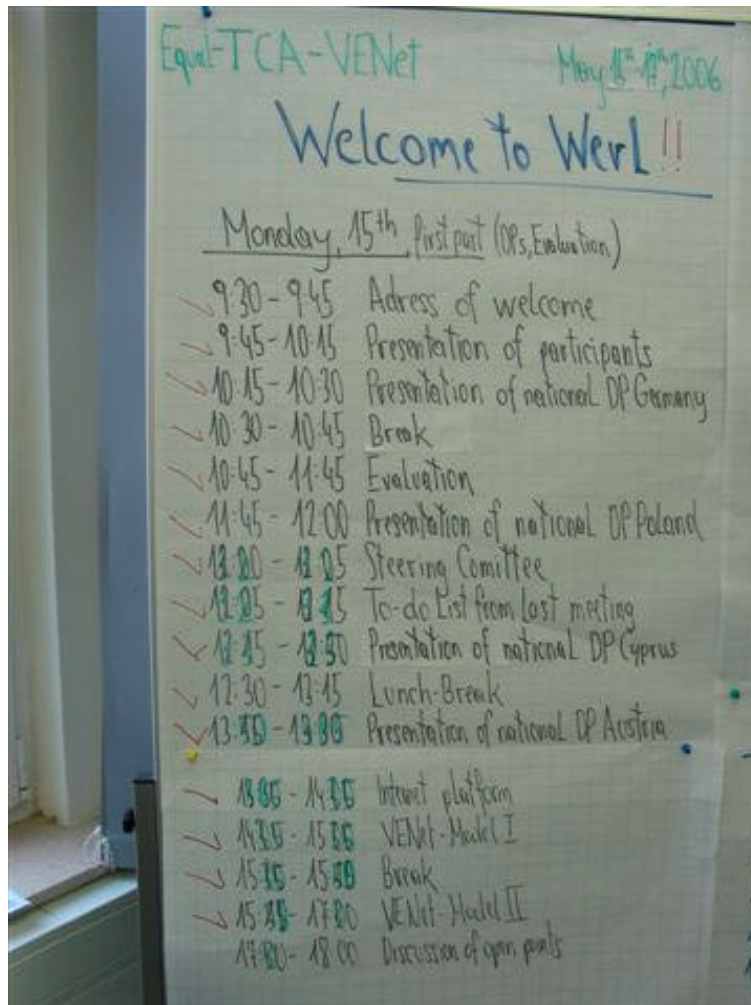 Equal-TCA-VENet May 15th-17th, 2006
Welcome to Werl!!
Monday, 15th, first part (DPs, Evaluation)
9:30 - 9:45 Adress of welcome
9:45 - 10:15 Presentation of participants
10:15 - 10:30 Presentation of national DP Germany
10:30 - 10:45 Break
10:45 - 11:45 Evaluation
11:45 - 12:00 Presentation of national DP Poland
Steering Comittee
To-do List from last meeting
Presentation of national DP Cyprus
12:30 - 13:15 Lunch-Break
Presentation of national DP Austria
Internet platform
VENet-Model I
Break
VENet-Model II
18:00 Discussion of open points